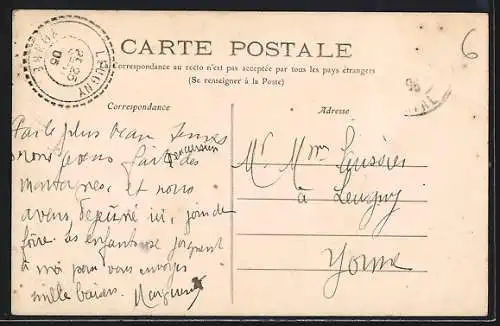 CARTE POSTALE
Correspondance au recto n'est pas acceptée par tous les pays étrangers
(Se renseigner à la Poste)
6
LEUGNY
YONNE
25
05
Correspondance
Adresse
Par le plus beau temps
nous avons fait
excursion
des
montagnes, et nous
avons déjeuné ici,
foire. Les enfants se joignent
à moi pour vous envoyer
mille baisers.
Mr Mme
à Leugny
Yonne